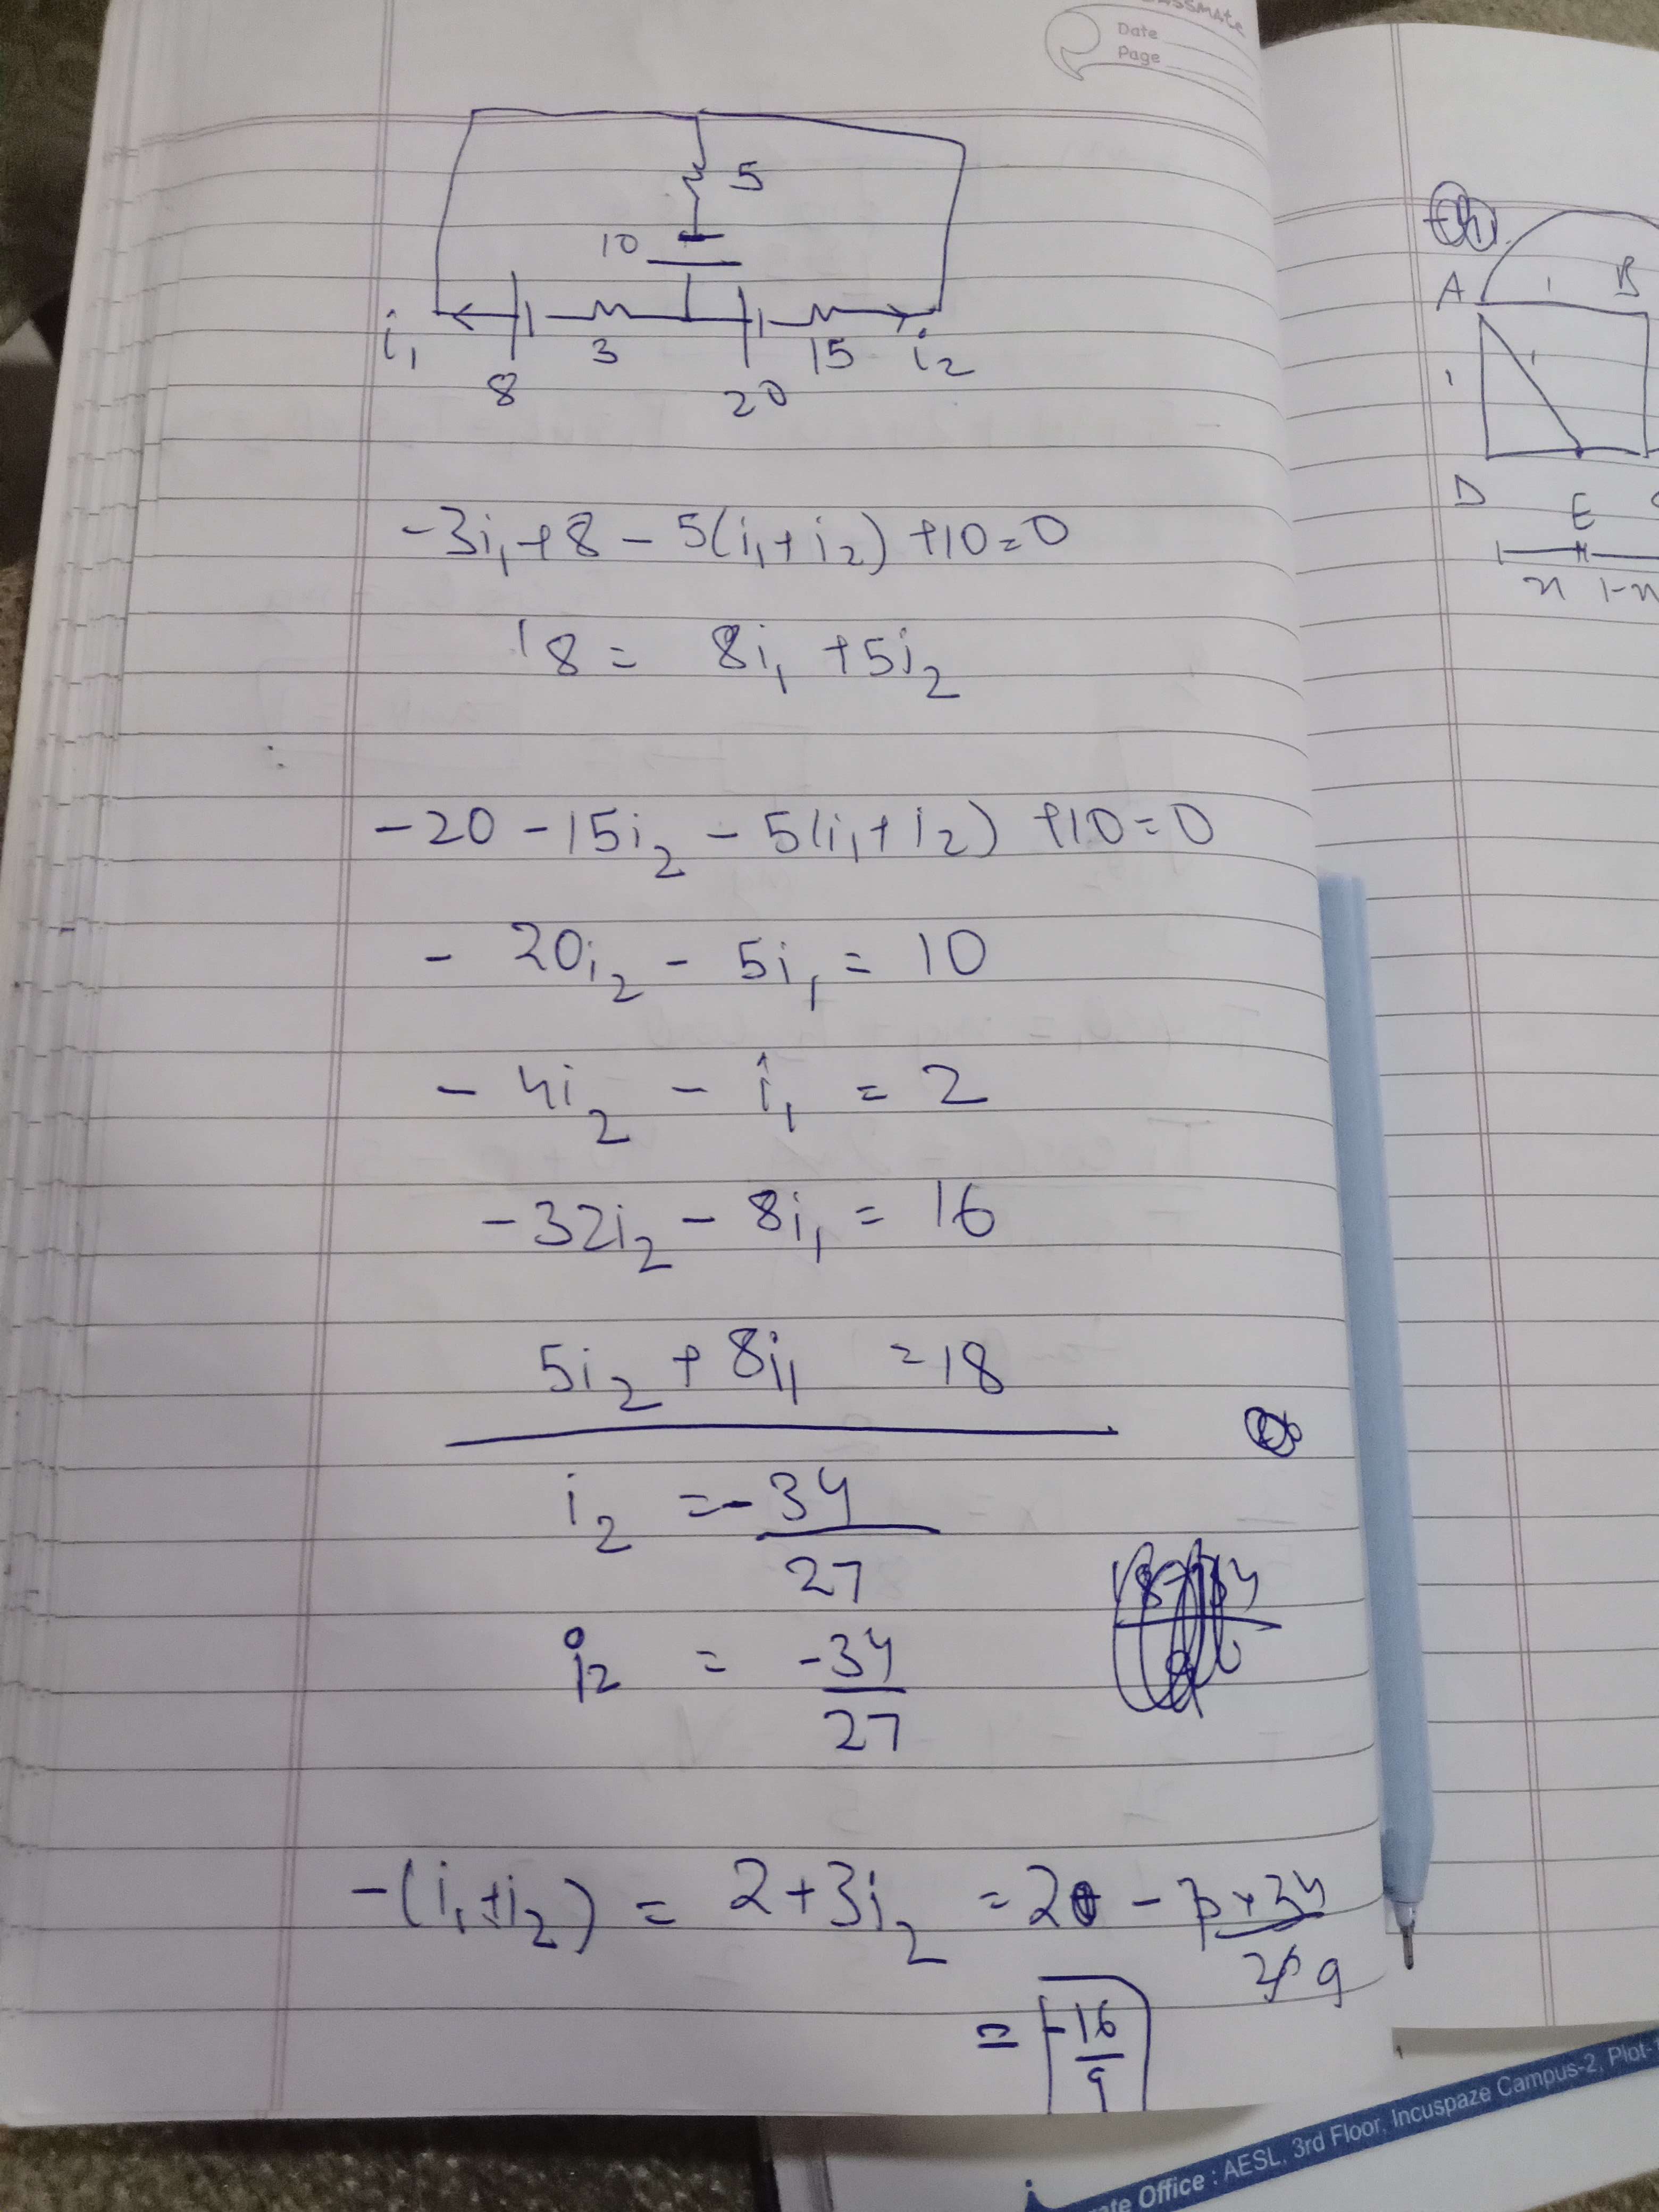 classmate
Date
Page
5
10
i₁
3
15
i₂
8
20
-3i₁+8-5(i₁+i₂)+10=0
18 = 8i₁+5i₂
-20-15i₂-5(i₁+i₂)+10=0
-20i₂-5i₁=10
-4i₂-i₁=2
-32i₂-8i₁=16
5i₂+8i₁=18
i₂=-34/27
i₂=-34/27
-(i₁+i₂)=2+3i₂=2-3×34/27 9
=-16/9
A
1
B
1
1
D
E
x
1-x
rate Office : AESL, 3rd Floor, Incuspaze Campus-2, Plot-